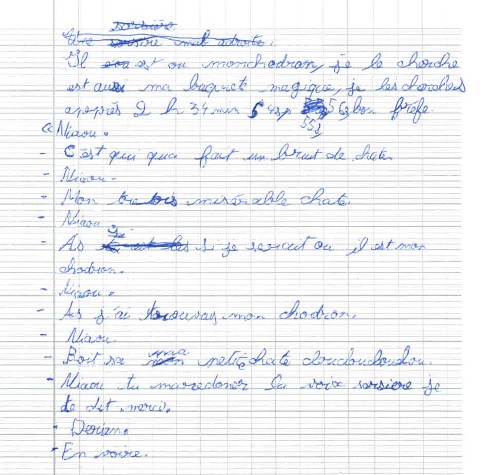 sorsière
Une sorsire mal adroite.
Il est ou monchodron, je le cherche
est aussi ma baguete magique, je les cherchers
apeprès 2 h 34 min 54s, 56s bon prèfe
55s
« Niaou.
- C'est qui qua fait un bruit de chate
- Niaou.
- Mon tre tois misérable chate.
- Niaou.
- As si je serait ou il est mon
chodron.
- Niaou.
- As j'ai trouvay mon chodron.
- Niaou.
- Boit sa ma netite chate doudoudoudou.
- Niaou tu ma redoner la voix sorsiere je
te dit merci.
- Derian.
- En voire.